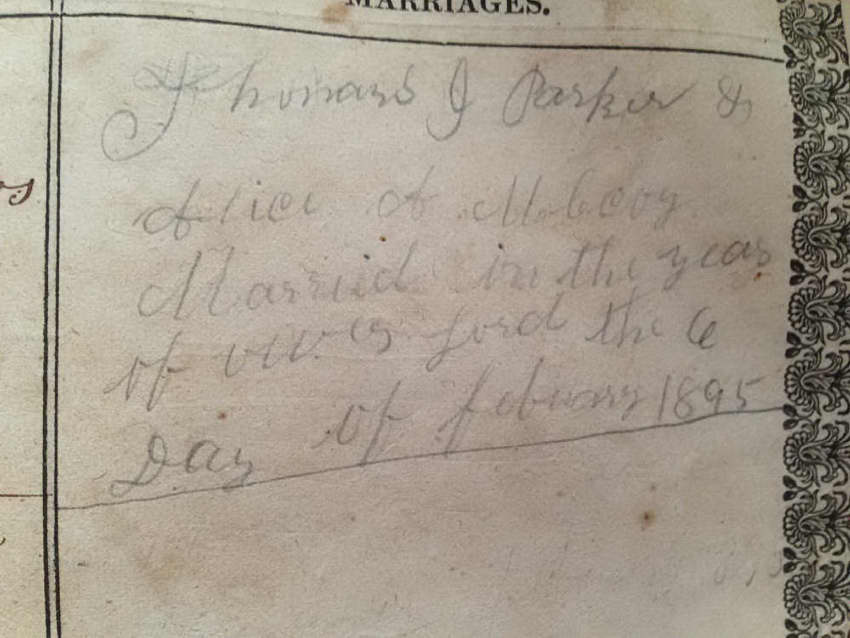 MARRIAGES.
Thomas J Parker &
Alice A McCoy
Married in the year
of our Lord the 6
Day of febuary 1895